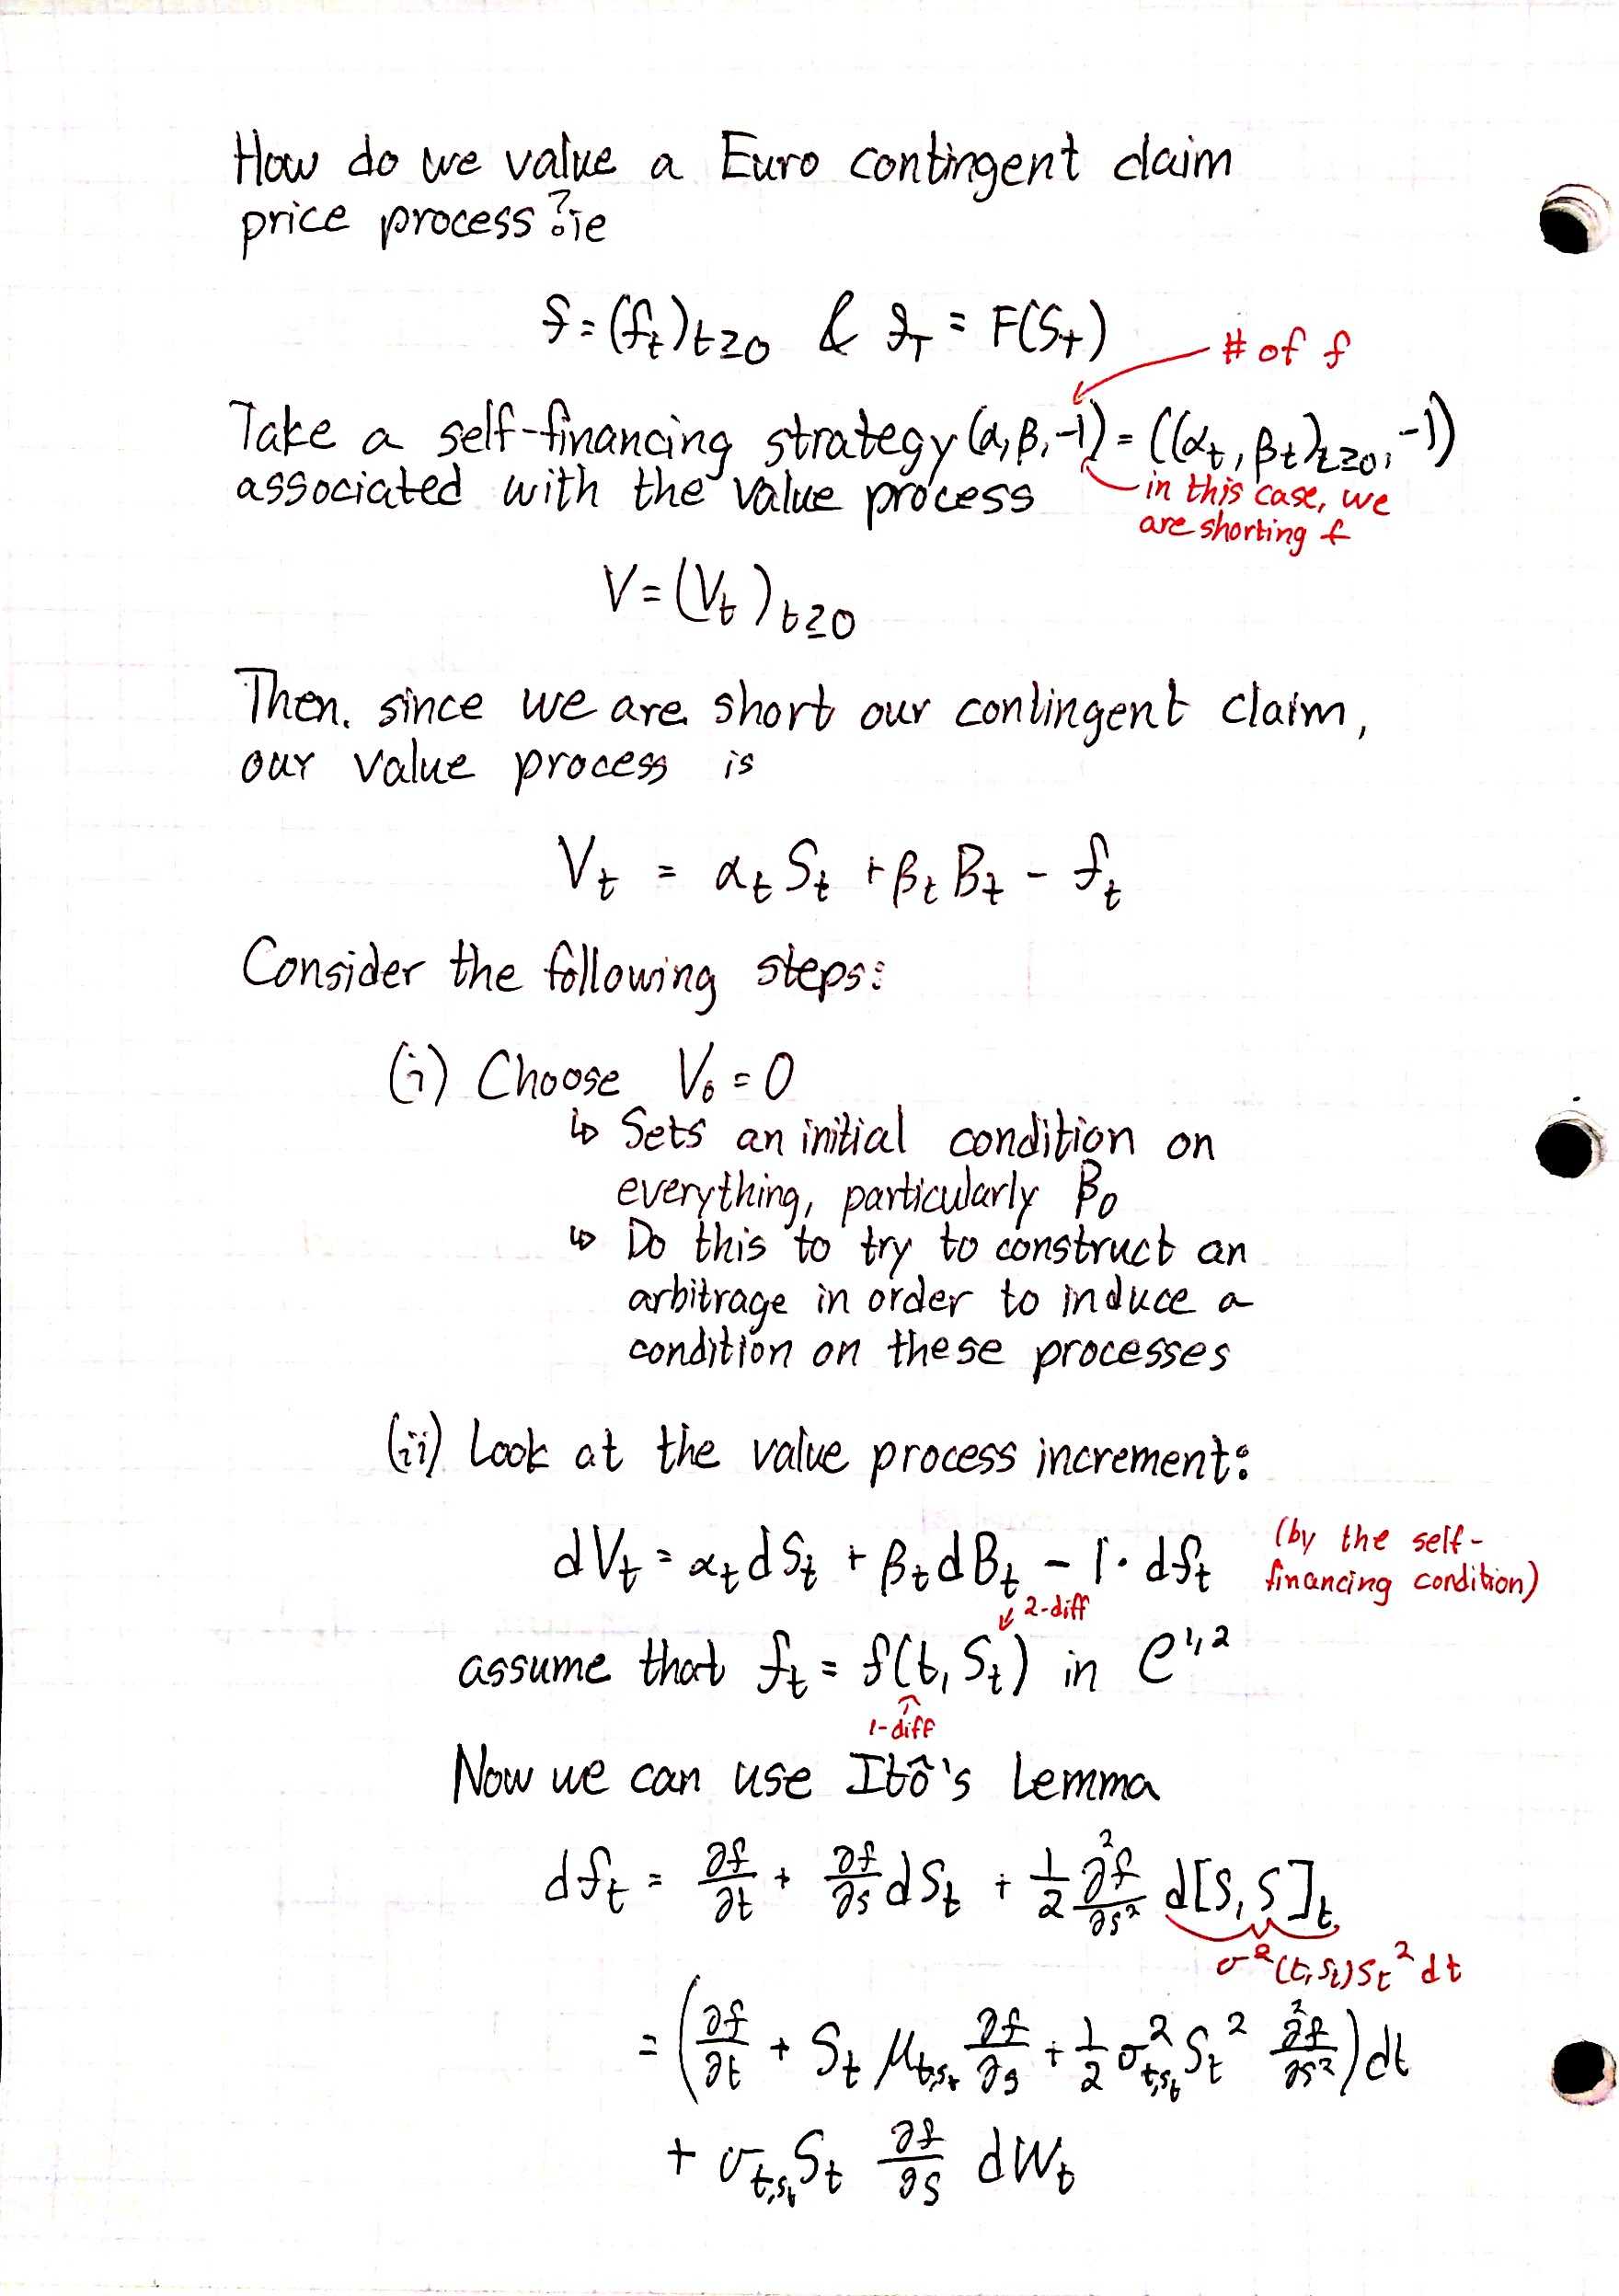 How do we value a Euro contingent claim
price process? ie
f = (f_t)_{t≥0} & f_T = F(S_T)
# of f
Take a self-financing strategy (α, β, -1) = ((α_t, β_t)_{t≥0}, -1)
associated with the value process
in this case, we
are shorting f
V = (V_t)_{t≥0}
Then, since we are short our contingent claim,
our value process is
V_t = α_t S_t + β_t B_t - f_t
Consider the following steps:
(i) Choose V_0 = 0
↳ Sets an initial condition on
everything, particularly β_0
↳ Do this to try to construct an
arbitrage in order to induce a
condition on these processes
(ii) Look at the value process increment:
dV_t = α_t dS_t + β_t dB_t - 1 · df_t
(by the self-
financing condition)
2-diff
assume that f_t = f(t, S_t) in C^{1,2}
1-diff
Now we can use Itô's Lemma
df_t = ∂f/∂t + ∂f/∂s dS_t + 1/2 ∂²f/∂s² d[S, S]_t
σ²(t, S_t) S_t² dt
= (∂f/∂t + S_t μ_{t,S_t} ∂f/∂s + 1/2 σ²_{t,S_t} S_t² ∂²f/∂s²) dt
+ σ_{t,S_t} S_t ∂f/∂s dW_t